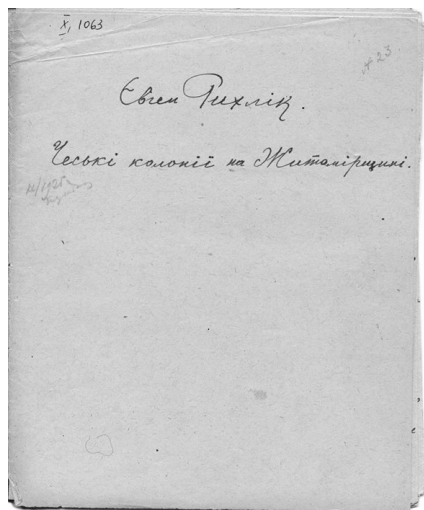 X, 1063
№ 23
Євген Рихлік.
Чеські колонії на Житомірщині.